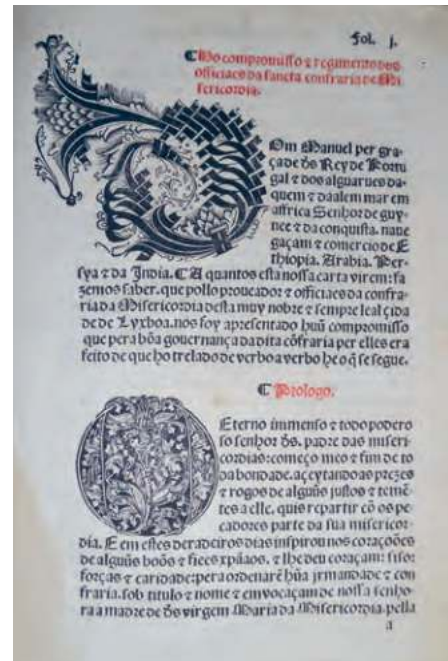 Fol. j.
¶ Do compromisso ⁊ regimento dos
officiaes da sancta confraria de Mi
sericordia.
Dom Manuel per gra
ça de d̃s Rey de Portu
gal ⁊ dos alguarues da
quem ⁊ daalem mar em
affrica Senhor de guy
nee ⁊ da conquista. naue
gaçam ⁊ comercio de E
thiopia. Arabia. Per
sya ⁊ da India. ¶ A quantos esta nossa carta virem: fa
zemos saber. que pollo proueador ⁊ officiaes da confra
ria da Misericordia desta muy nobre ⁊ sempre leal çida
de de Lyxboa. nos foy apresentado huũ compromisso
que pera bõa gouernança da dita cõfraria per elles era
feito de que ho trelado de verbo a verbo he o q̃ se segue.
¶ Prologo.
Eterno immenso ⁊ todo podero
so senhor d̃s. padre das miseri
cordias: começo meo ⁊ fim de to
da bondade. açeytando as prezes
⁊ rogos de alguũs justos ⁊ temẽ
tes a elle. quis repartir cõ os pe
cadores parte da sua misericor
dia. E em estes deradeiros dias inspirou nos corações
de alguũs boõs ⁊ fiees xpaãos. ⁊ lhe deu coraçam: siso:
forças ⁊ caridade: pera ordenarẽ hũa jrmandade ⁊ con
fraria. sob titulo ⁊ nome ⁊ emvocaçam de nossa senho
ra a madre de d̃s virgem Maria da Misericordia. pella
a